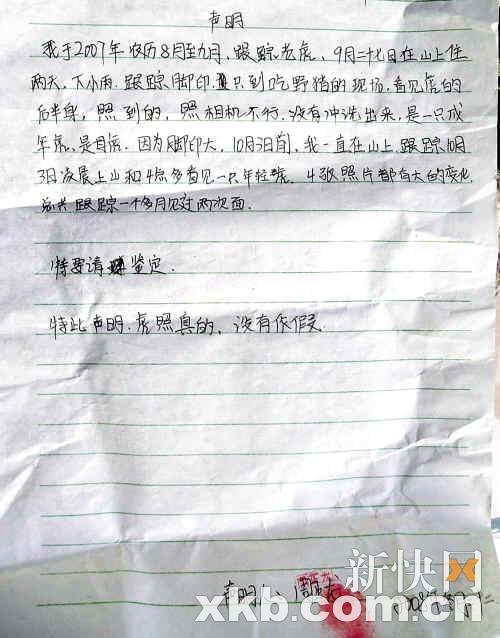 声明
我于2007年农历8月至九月,跟踪老虎,9月二十七日在山上住
两天,下小雨,跟踪脚印只到吃野猪的现场,看见虎的
后半身,照到的,照相机不行,没有冲洗出来,是一只成
年虎,是母虎。因为脚印大,10月3日前,我一直在山上,跟踪10月
3日凌晨上山和4点多看见一只年轻虎。4张照片都有大的变化
总共跟踪一个多月见过两次面.
特要请鉴定.
特此声明.虎照真的,没有作假.
声明人:周
2008年
新快网
xkb.com.cn